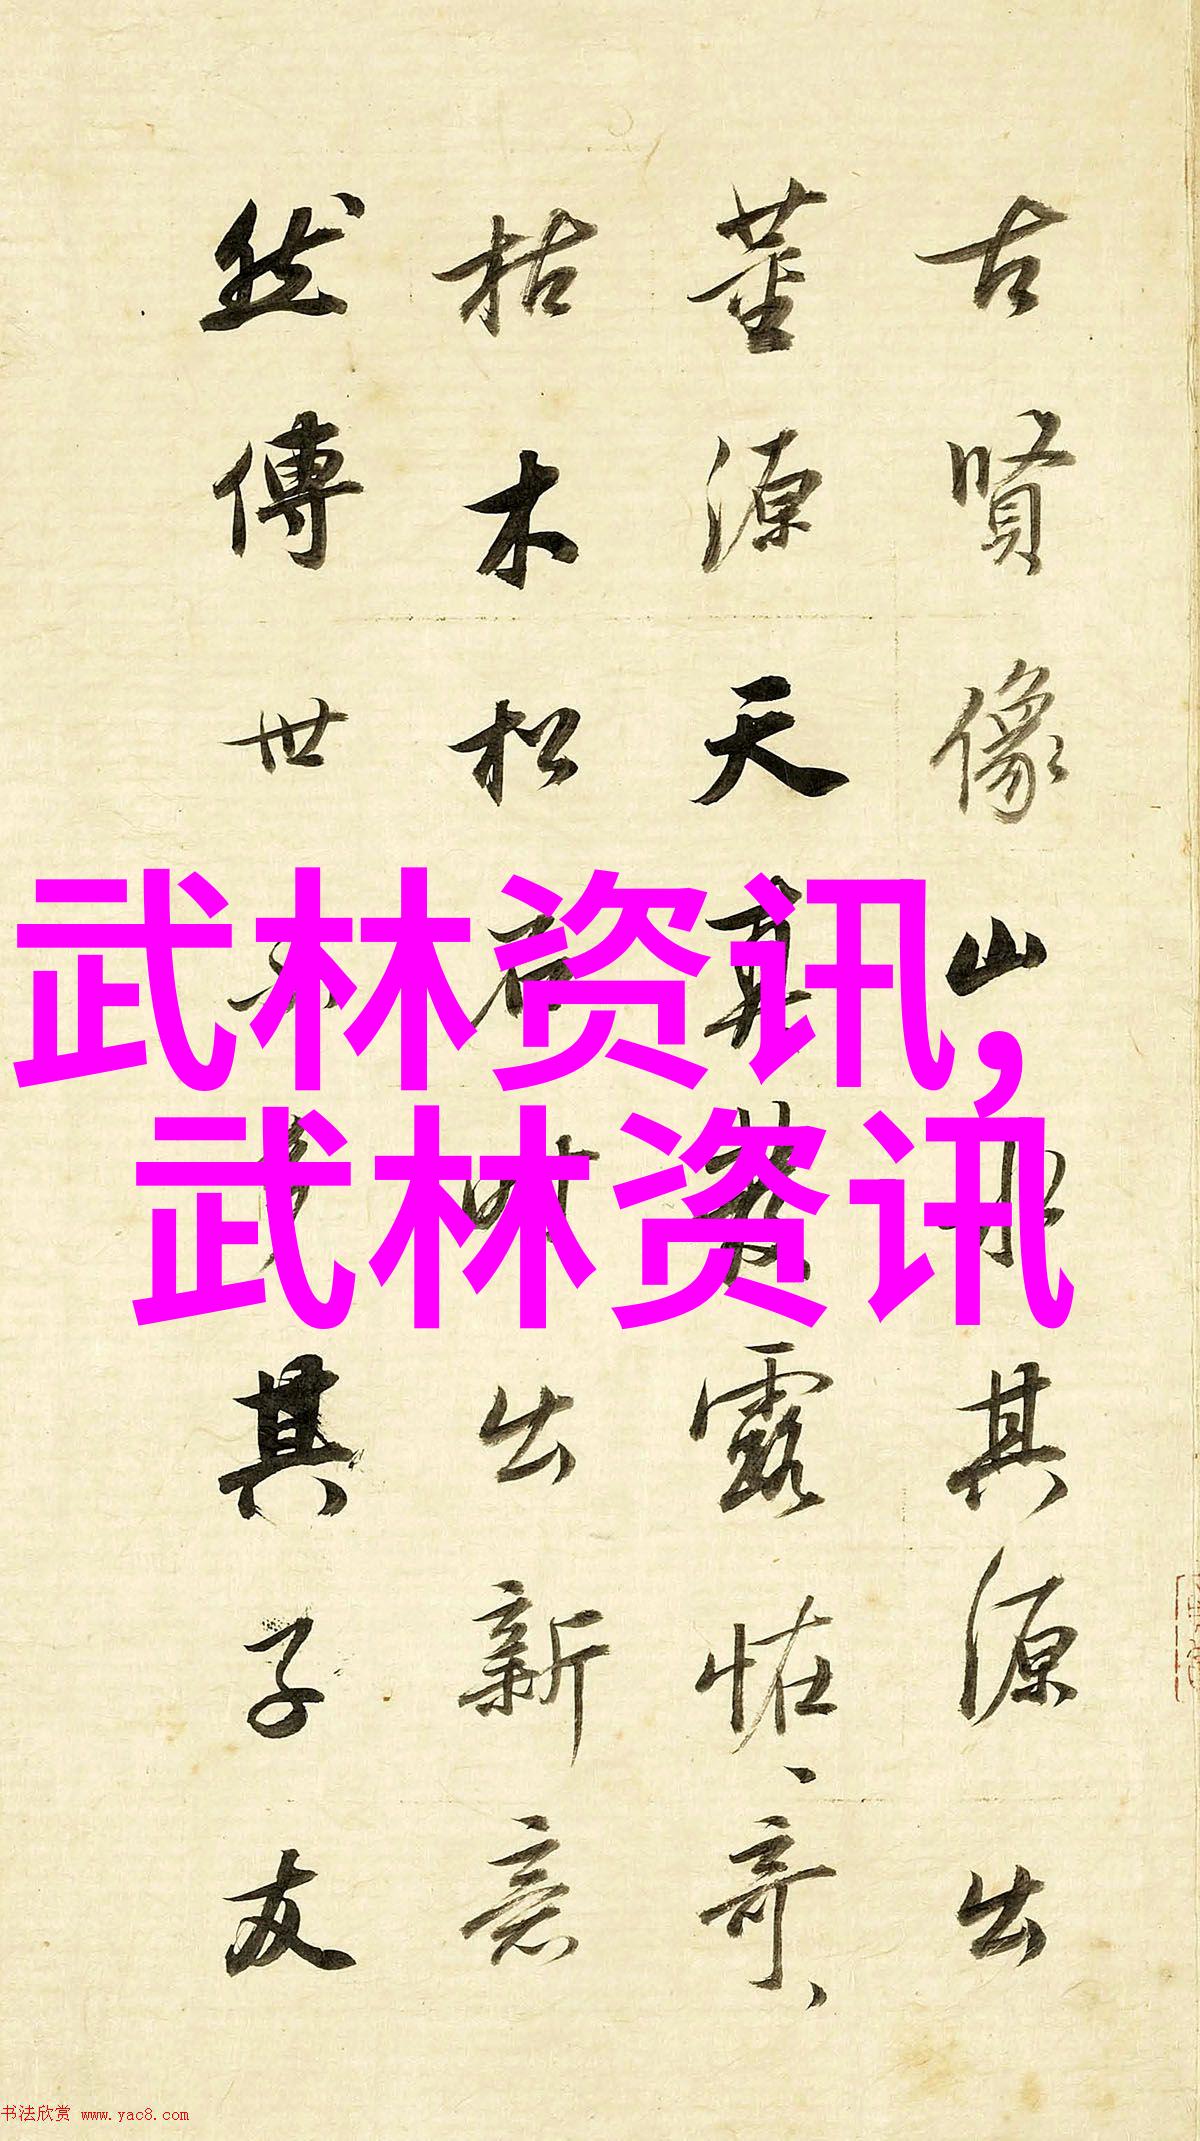 古賢像山水其源出
董源天真發露恠、奇、
枯木松石時出新意
然傳世不多其子友
武林资讯,
武林资讯
书法欣赏 www.yac8.com